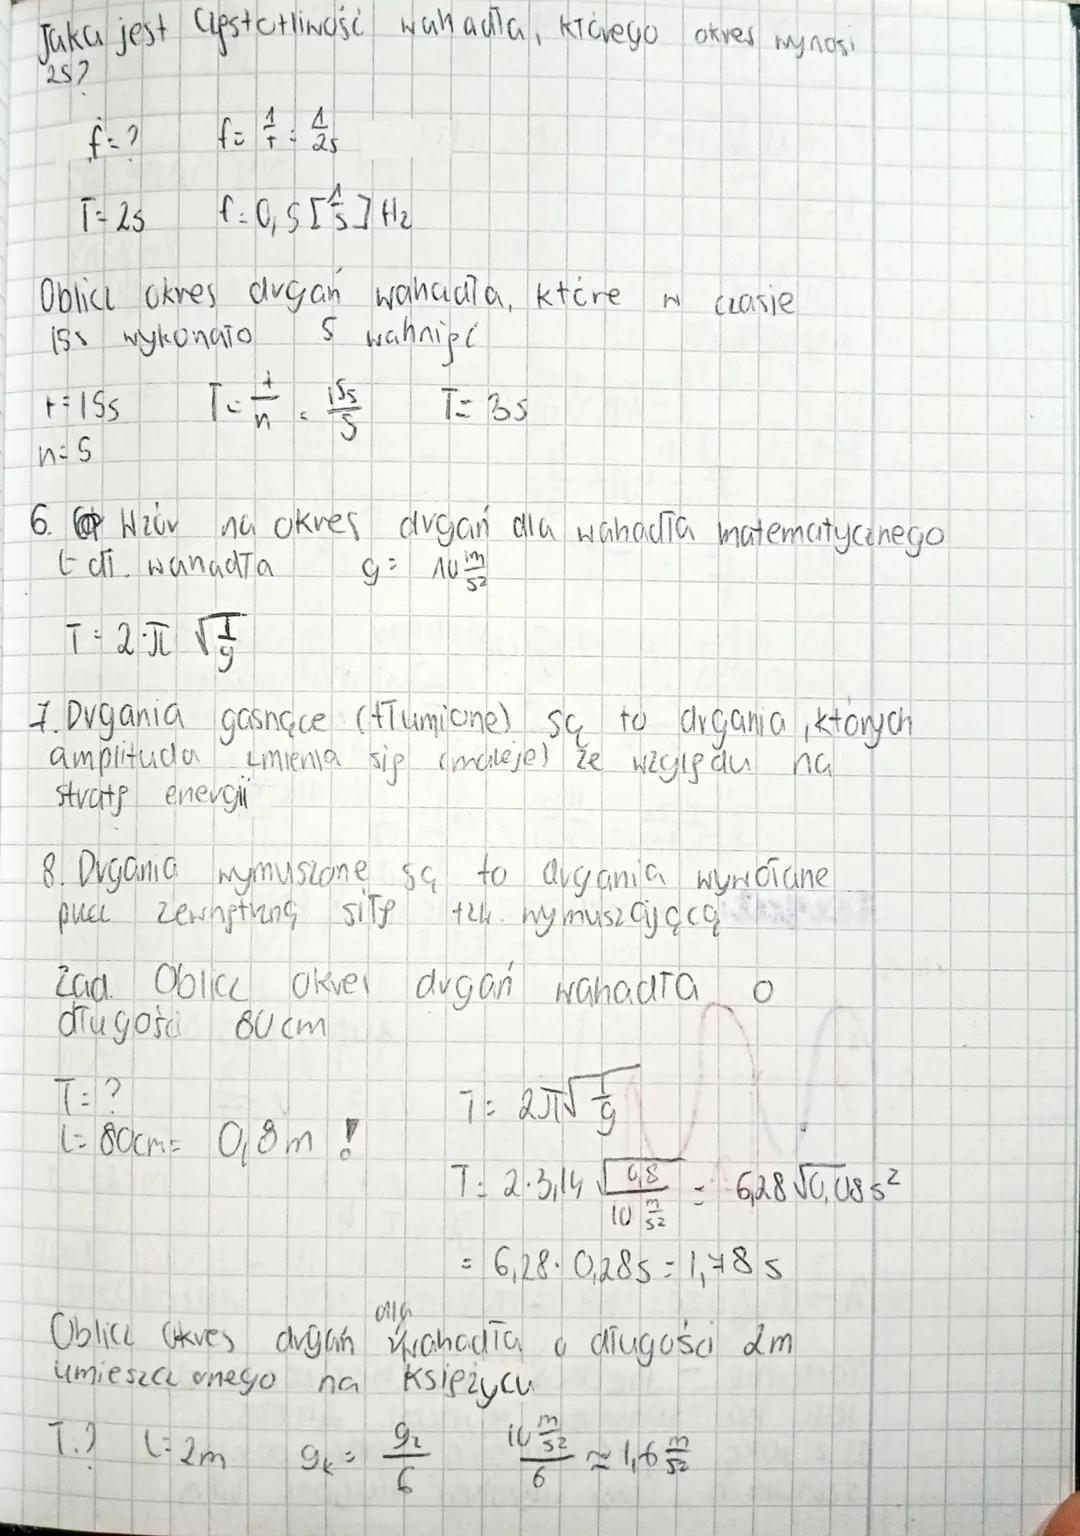 Jaka jest częstotliwość wahadła, którego okres wynosi
2s?
f=? f= 1/T = 1/2s
T=2s f=0,5 [1/s] Hz
Oblicz okres drgań wahadła, które w czasie
15s wykonało 5 wahnięć
t=15s T= t/n = 15s/5 T=3s
n=5
6. Wzór na okres drgań dla wahadła matematycznego
l-dł. wahadła g= 10 m/s²
T=2·π √l/g
7. Drgania gasnące (tłumione) są to drgania, których
amplituda zmienia się (maleje) ze względu na
stratę energii
8. Drgania wymuszone są to drgania wywołane
przez zewnętrzną siłę tzw. wymuszającą
Zad. Oblicz okres drgań wahadła o
długości 80cm
T=? T= 2π√l/g
l=80cm= 0,8m !
T= 2·3,14 √0,8/10 m/s² = 6,28 √0,08 s²
= 6,28·0,28s = 1,78 s
Oblicz okres drgań dla wahadła o długości 2m
umieszczonego na księżycu
T=? l=2m gk = gz/6 10 m/s²/6 ≈ 1,6 m/s²